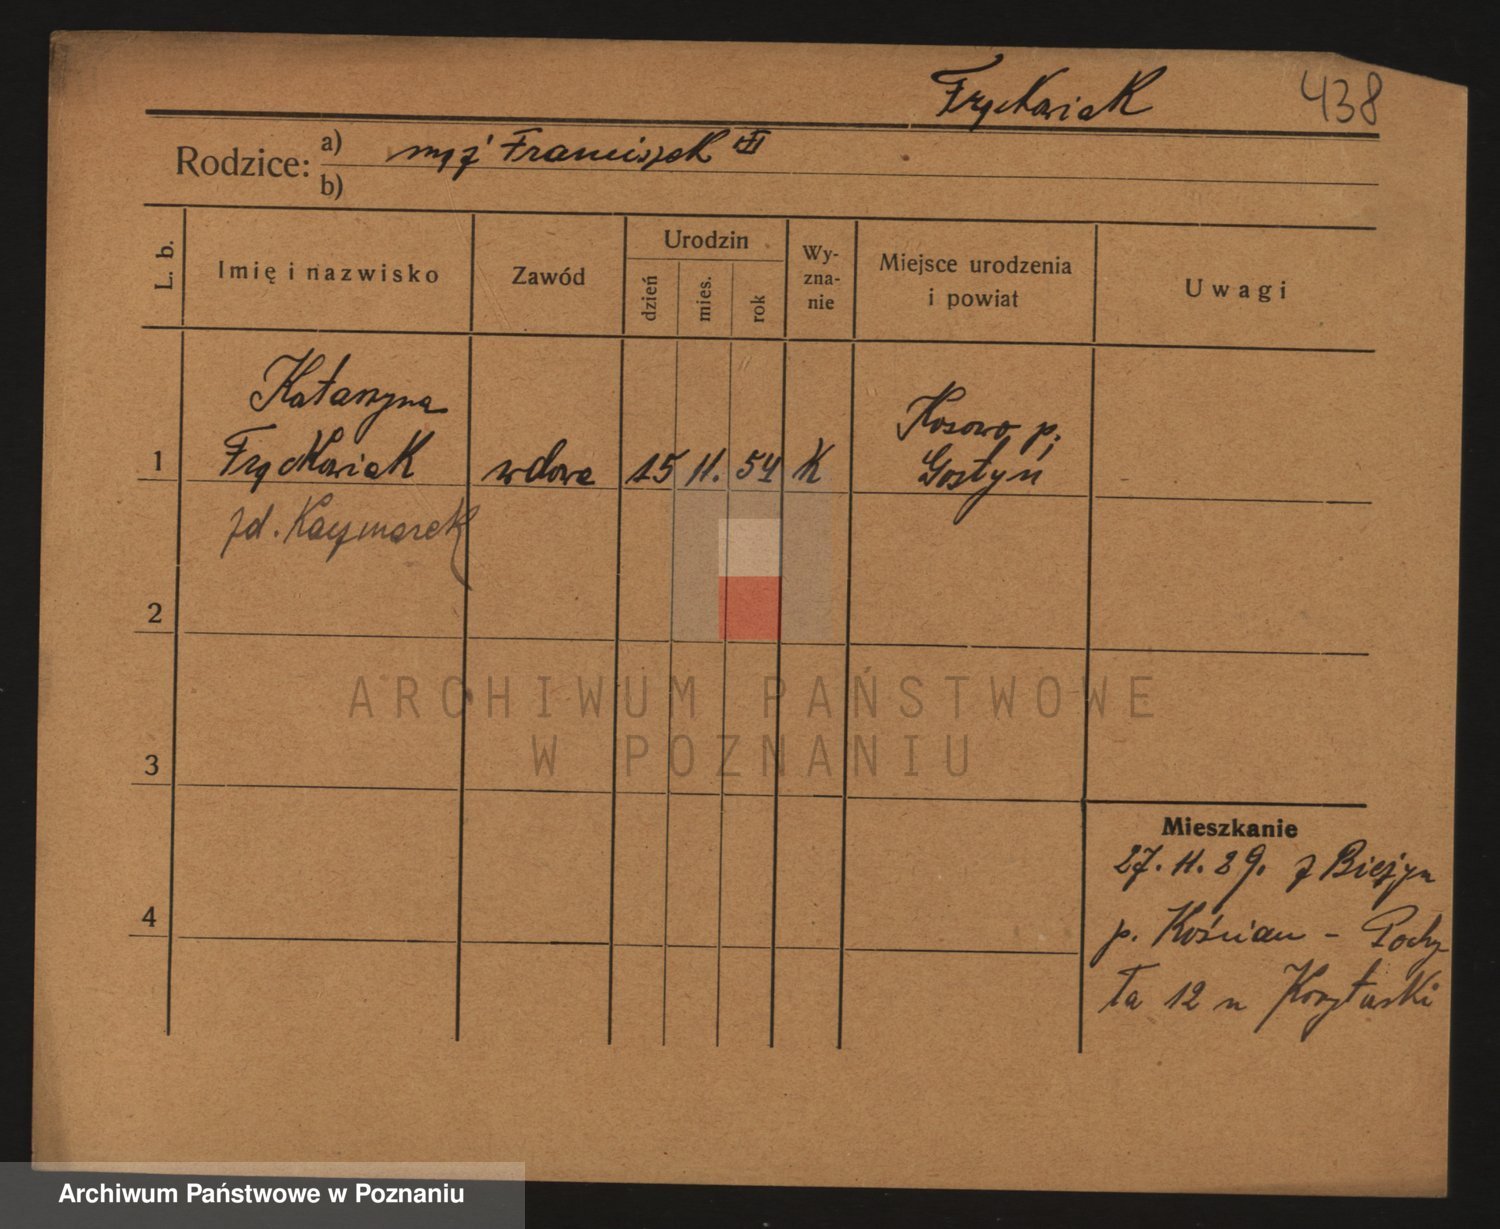 Frąckowiak 438
Rodzice: a) mąż Franciszek
b)
L. b.
Imię i nazwisko
Zawód
Urodzin
dzień
mies.
rok
Wy-
zna-
nie
Miejsce urodzenia
i powiat
Uwagi
Katarzyna
1 Frąckowiak wdowa 15 11. 54 K
Kosowo p.
Gostyń
zd. Kaczmarek
2
3
4
ARCHIWUM PAŃSTWOWE
W POZNANIU
Mieszkanie
27. 11. 29. z Bieżyn
p. Kościan -
12
Archiwum Państwowe w Poznaniu